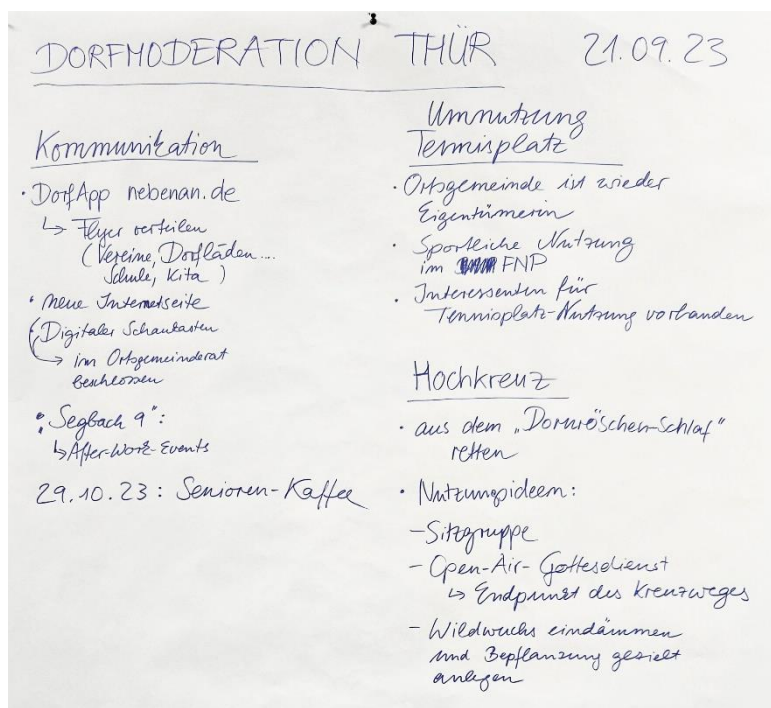 DORFMODERATION THÜR 21.09.23
Kommunikation
· DorfApp nebenan.de
↳ Flyer verteilen
(Vereine, Dorfläden...
Schule, Kita)
· neue Internetseite
(Digitaler Schaukasten
→ im Ortsgemeinderat
beschlossen
· "Segbach 9":
↳ After-Work-Events
29.10.23: Senioren-Kaffee
Umnutzung
Tennisplatz
· Ortsgemeinde ist wieder
Eigentümerin
· Sportliche Nutzung
im FNP
· Interessenten für
Tennisplatz-Nutzung vorhanden
Hochkreuz
· aus dem „Dornröschen-Schlaf"
retten
· Nutzungsideen:
- Sitzgruppe
- Open-Air-Gottesdienst
↳ Endpunkt des Kreuzweges
- Wildwuchs eindämmen
und Bepflanzung gezielt
anlegen